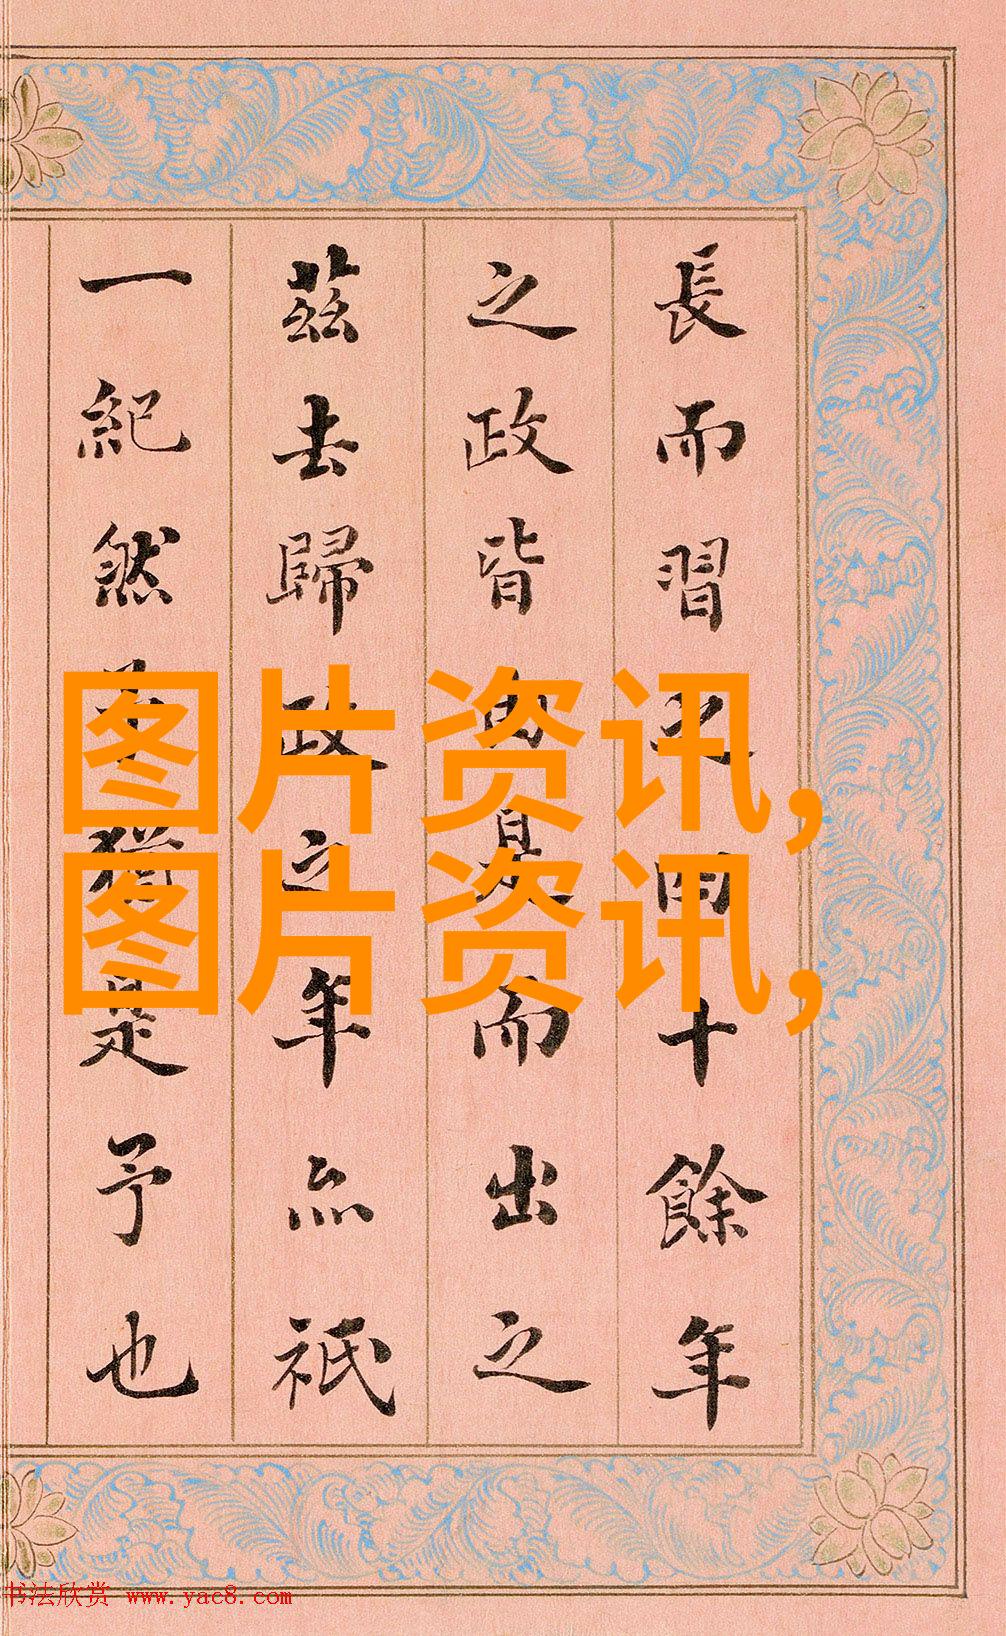 長而習之四十餘年
之政皆由是而出之
茲去歸政之年亦祇
一紀然猶是予也
图片资讯,
图片资讯,
书法欣赏 www.yac8.com